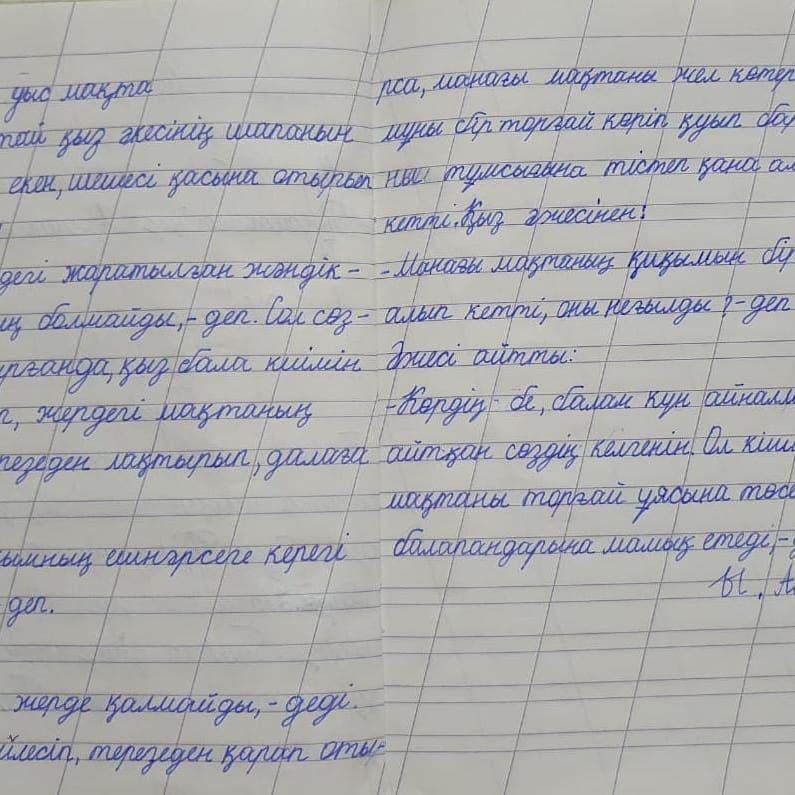 уыс мақта
тай қыз әкесінің шапанын
екен, шешесі қасына отырып
дегі жаратылған жәндік-
ң болмайды,- деп. Сол сөз-
рғанда, қыз бала киімін
п, жердегі мақтаның
резеден лақтырып, далаға
ымның ешнәрсеге керегі
деп.
жерде қалмайды,- деді.
йлесіп, терезеден қарап оты-
рса, манағы мақтаны жел көтер
мұны бір торғай көріп қуып бар
ны тұмсығына тістеп қана ал
кетті. Қыз әжесінен!
-Манағы мақтаның қиқымын бір
алып кетті, оны неғылды?- деп
Әжесі айтты:
-Көрдің- бе, балам күн айналм
айтқан сөздің келгенін. Ол кішк
мақтаны торғай ұясына төсе
балапандарына мамық етеді,-
Ы. А